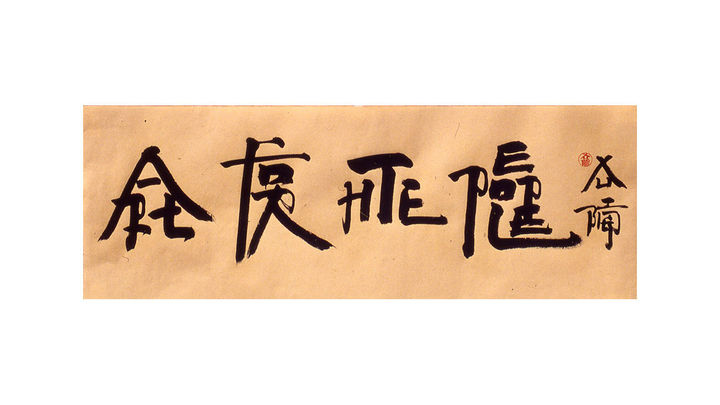 ART FOR THE PEOPLE
XU BING